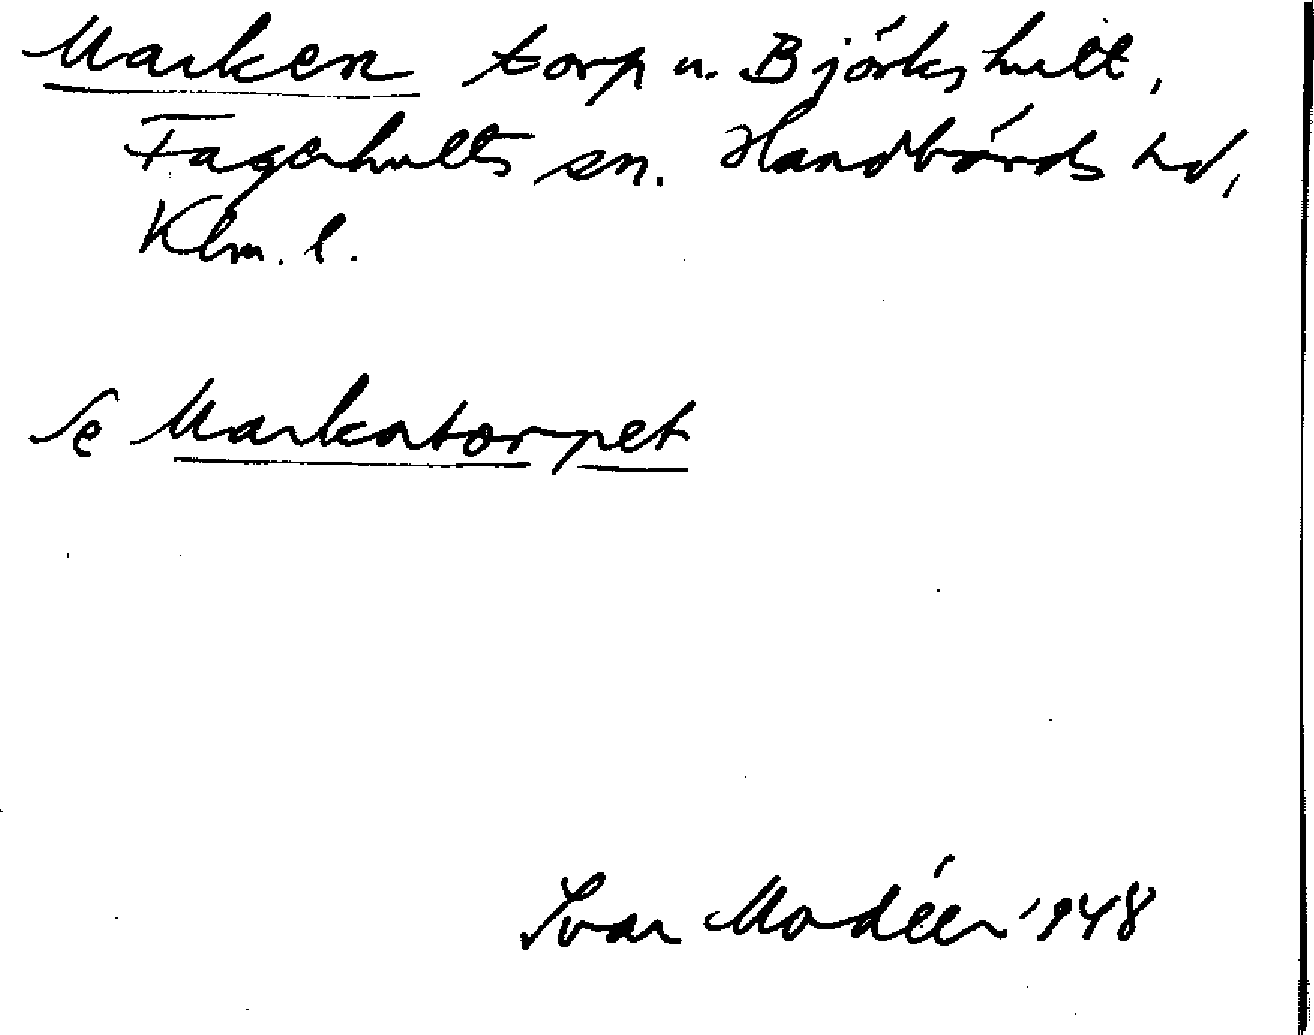 Marken torp u. Björkshult,
Fagerhults sn. Handbörds hd,
Klm. l.
Se Markatorpet
Ivar Modéer 1948